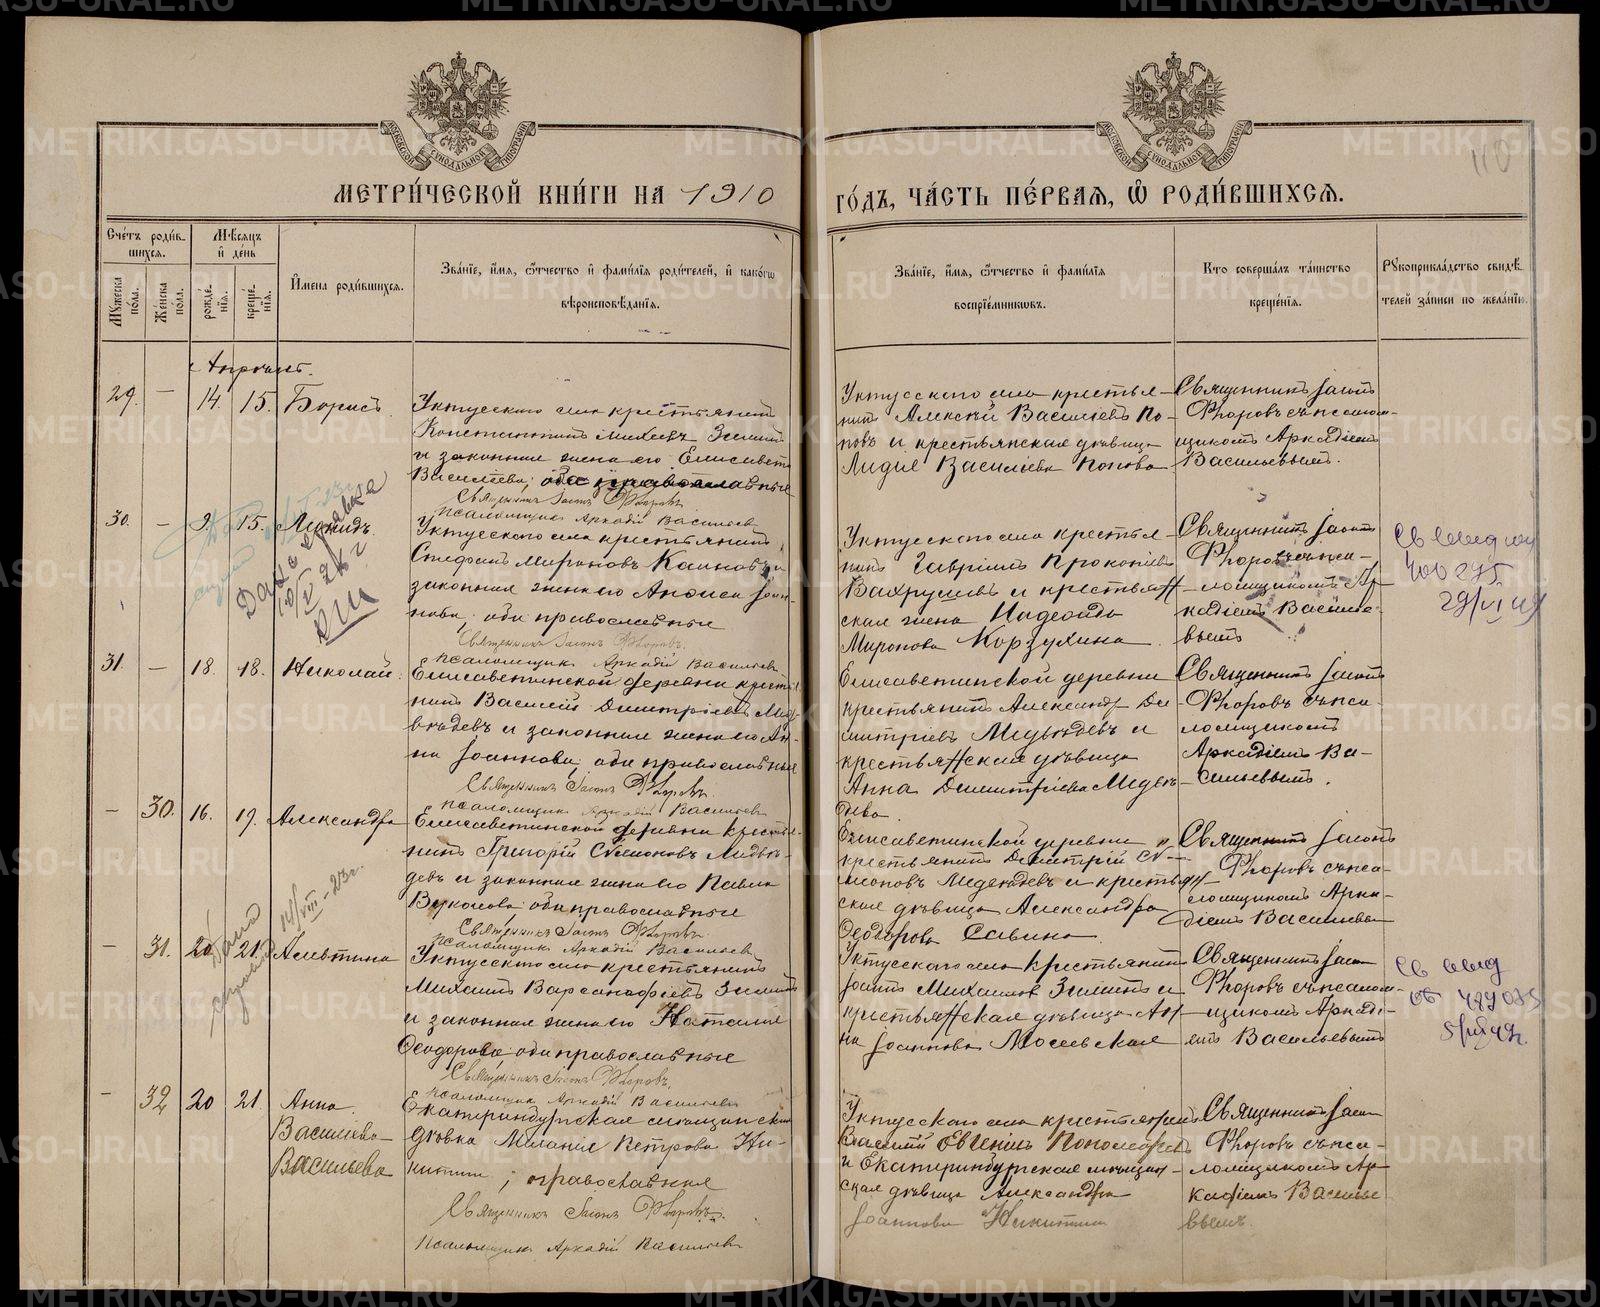 МЕТРИ́ЧЕСКОЙ КНИ́ГИ НА 1910
ГО́ДЪ, ЧА́СТЬ ПЕ́РВАЯ, Ѡ РОДИ́ВШИХСЯ.
110
Сче́тъ роди́вшихся.
Мꙋ́жеска по́ла.
Же́нска по́ла.
Мѣ́сяцъ и́ де́нь
рожде́нїя.
креще́нїя.
И́мена роди́вшихся.
Зва́нїе, и́мя, ѻ́тчество и́ фами́лїя роди́телей, и́ како́гѡ
вѣроисповѣ́данїя.
Зва́нїе, и́мя, ѻ́тчество и́ фами́лїя
воспрїе́мникωвъ.
Кто̀ соверша́лъ та́инство
креще́нїя.
Рꙋкоприкла́дство свидѣ́телей за́писи по жела́нїю.
Апрѣль.
29. — 14. 15. Борисъ.
Уктусскаго села крестьянинъ
Константинъ Михеевъ Зиминъ
и законная жена его Елисавета
Васильева; оба православные
Священникъ Іоаннъ Флоровъ
Псаломщикъ Аркадій Васильевъ
Уктусскаго села крестья-
нинъ Алексѣй Васильевъ По-
повъ и крестьянская дѣвица
Лидія Васильева Попова
Священникъ Іоаннъ
Флоровъ съ псалом-
щикомъ Аркадіемъ
Васильевымъ.
30. — 9. 15. Леонидъ.
Дана справка
Уктусскаго села крестьянинъ
Стефанъ Мироновъ
законная жена его Анфиса Іоан-
нова; оба православные
Священникъ Іоаннъ Флоровъ.
Псаломщикъ Аркадій Васильевъ
Уктусскаго села крестья-
нинъ Гавріилъ Прокопіевъ
Вахрушевъ и крестьян-
ская жена Надежда
Миронова Корзухина
Священникъ Іоаннъ
Флоровъ съ пса-
ломщикомъ Ар-
кадіемъ Василье-
вымъ
31. — 18. 18. Николай.
Елисаветинской деревни кресть-
нинъ Василій Димитріевъ Мед-
вѣдевъ и законная жена его Ан-
на Іоаннова; оба православные
Священникъ Іоаннъ Флоровъ.
Псаломщикъ Аркадій Васильевъ
Елисаветинской деревни
крестьянинъ Александръ Ди-
митріевъ Медвѣдевъ и
крестьянская дѣвица
Анна Димитріева Медвѣ-
дева
Священникъ Іоаннъ
Флоровъ съ пса-
ломщикомъ
Аркадіемъ Ва-
сильевымъ.
— 30. 16. 19. Александра
Елисаветинской деревни крестья-
нинъ Григорій Симоновъ Медвѣ-
девъ и законная жена его Павла
Вуколова: оба православные
Священникъ Іоаннъ Флоровъ
Псаломщикъ Аркадій Васильевъ
Елисаветинской деревни
крестьянинъ Димитрій Си-
моновъ Медвѣдевъ и крестьян-
ская дѣвица Александра
Ѳеодорова Савина
Священникъ Іоаннъ
Флоровъ съ пса-
ломщикомъ Арка-
діемъ Васильевы
— 31. 20 21. Алевтина
Уктусскаго села крестьянинъ
Михаилъ Варсанофіевъ Зиминъ
и законная жена его Наталія
Ѳеодорова; оба православные
Священникъ Іоаннъ Флоровъ.
Псаломщикъ Аркадій Васильевъ
Уктусскаго села крестьянинъ
Іоаннъ Михаиловъ Зиминъ и
крестьянская дѣвица Ан-
на Іоаннова Мосеевская
Священникъ Іоаннъ
Флоровъ съ псалом-
щикомъ Аркаді-
емъ Васильевымъ
— 32 20 21. Анна
Васильева
Васильева
Екатеринбургская мѣщанская
дѣвка Меланія Петрова Ни-
китина; православная
Священникъ Іоаннъ Флоровъ.
Псаломщикъ Аркадій Васильевъ
Уктусскаго села крестьянинъ
Василій Евгеніевъ Пономаревъ
и Екатеринбургская мѣщан-
ская дѣвица Александра
Іоаннова Никитина
Священникъ Іоаннъ
Флоровъ съ пса-
ломщикомъ Ар-
кадіемъ Василье-
вымъ.
METRIKI.GASO-URAL.RU